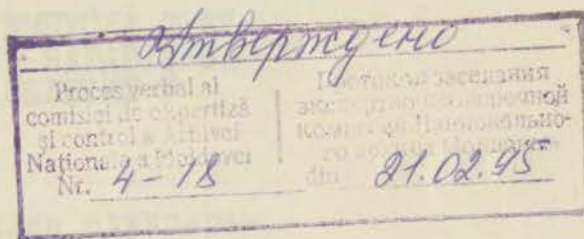 Утверждено
Proces verbal al
comisiei de expertiză
și control a Arhivei
Naționale a Moldovei
Nr. 4-18
Протокол заседания
экспертно-проверочной
комиссии Национально-
го архива Молдовы
din 21.02.95